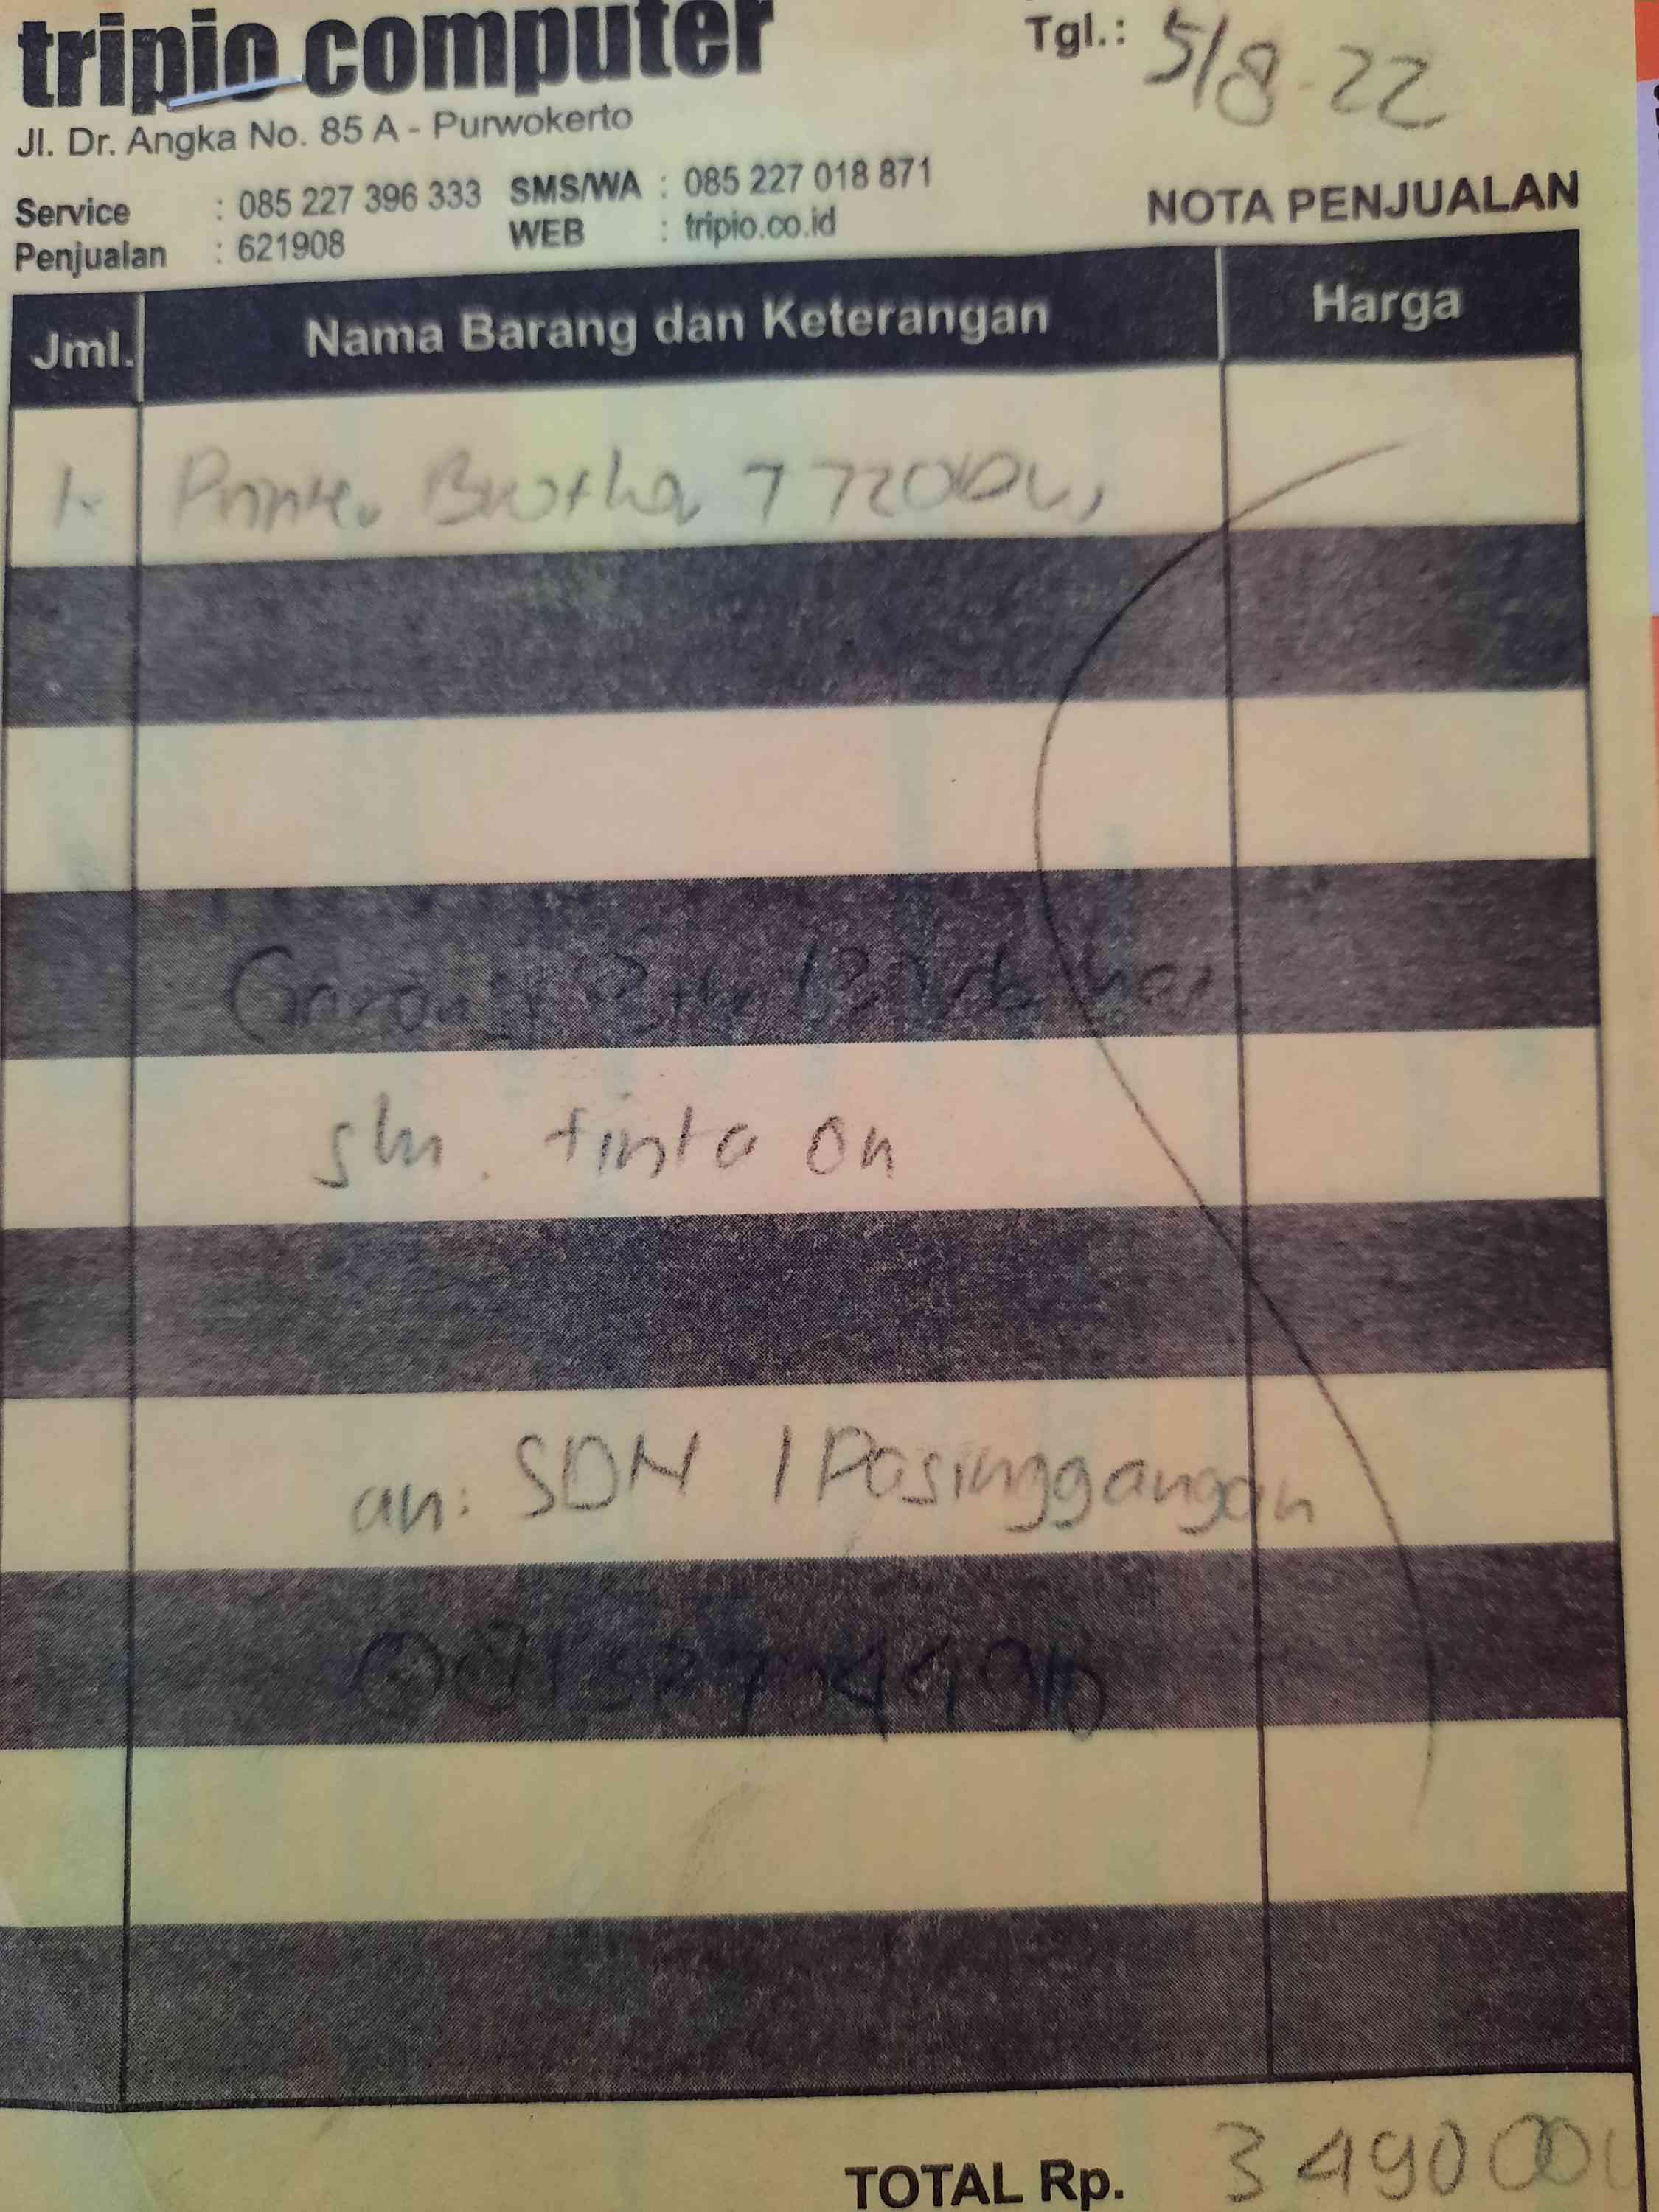 tripio computer
Tgl.: 5/8-22
Jl. Dr. Angka No. 85 A - Purwokerto
Service : 085 227 396 333 SMS/WA : 085 227 018 871
Penjualan : 621908 WEB : tripio.co.id
NOTA PENJUALAN
Jml. Nama Barang dan Keterangan Harga
1. Printer Brother T 720DW
tinta on
an: SDN 1 Pasinggangan
TOTAL Rp. 3490000